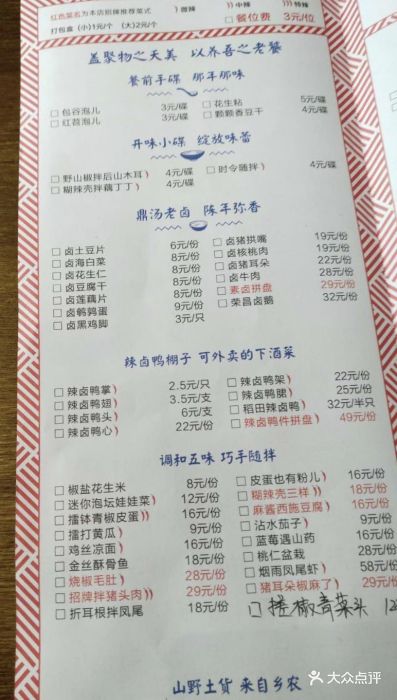 红色菜名为本店招牌推荐菜式 )微辣 ))中辣 )))特辣
打包盒 (小)1元/个 (大)2元/个 □餐位费 3元/位
盖聚物之夭美 以养吾之老饕
餐前手碟 那年那味
□包谷泡儿 3元/碟 □花生粘 5元/碟
□红苕泡儿 3元/碟 □颗颗香豆干 4元/碟
开味小碟 绽放味蕾
□野山椒拌后山木耳) 4元/碟 □时令随拌) 4元/碟
□糊辣壳拌藕丁丁) 4元/碟
鼎汤老卤 陈年弥香
□卤土豆片 6元/份 □卤猪拱嘴 19元/份
□卤海白菜 8元/份 □卤核桃肉 19元/份
□卤花生仁 8元/份 □卤猪耳朵 22元/份
□卤豆腐干 8元/份 □卤牛肉 28元/份
□卤莲藕片 8元/份 □素卤拼盘 29元/份
□卤鹌鹑蛋 9元/份 □荣昌卤鹅 32元/份
□卤黑鸡脚 3元/只
辣卤鸭棚子 可外卖的下酒菜
□辣卤鸭掌) 2.5元/只 □辣卤鸭架) 22元/份
□辣卤鸭翅) 3.5元/支 □辣卤鸭腿) 25元/份
□辣卤鸭头) 6元/支 □稻田辣卤鸭) 32元/半只
□辣卤鸭心) 22元/份 □辣卤鸭件拼盘) 49元/份
调和五味 巧手随拌
□椒盐花生米 8元/份 □皮蛋也有粉儿) 16元/份
□迷你泡坛娃娃菜) 12元/份 □糊辣壳三样)) 18元/份
□擂钵青椒皮蛋)) 16元/份 □麻酱西施豆腐) 16元/份
□擂打黄瓜) 9元/份 □沾水茄子) 9元/份
□鸡丝凉面) 16元/份 □蓝莓遇山药 16元/份
□金丝酥骨鱼 18元/份 □桃仁盆栽 28元/份
□烧椒毛肚) 28元/份 □烟雨凤尾虾) 58元/份
□招牌拌猪头肉)) 29元/份 □猪耳朵椒麻了) 29元/份
□折耳根拌凤尾 18元/份 □搓椒青菜头
山野土货 来自乡农
大众点评